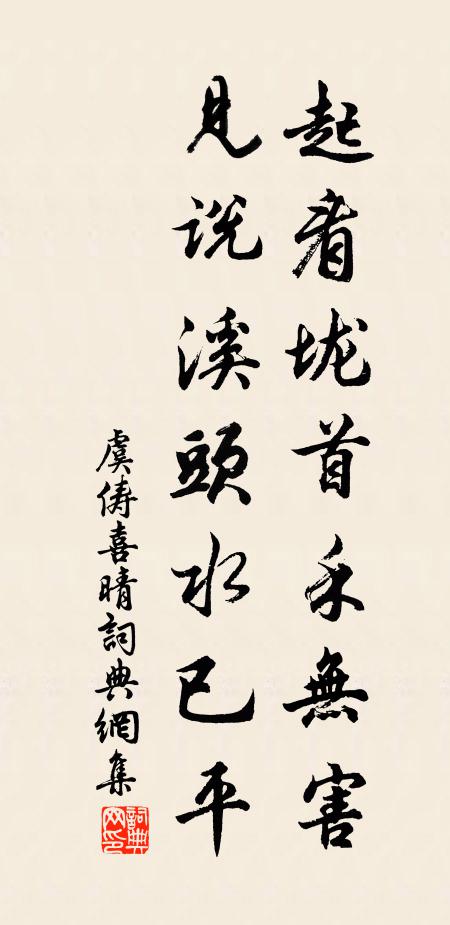 起看垅首禾無害
見説溪頭水已平
虞儔喜晴詞典網集
詞典網印